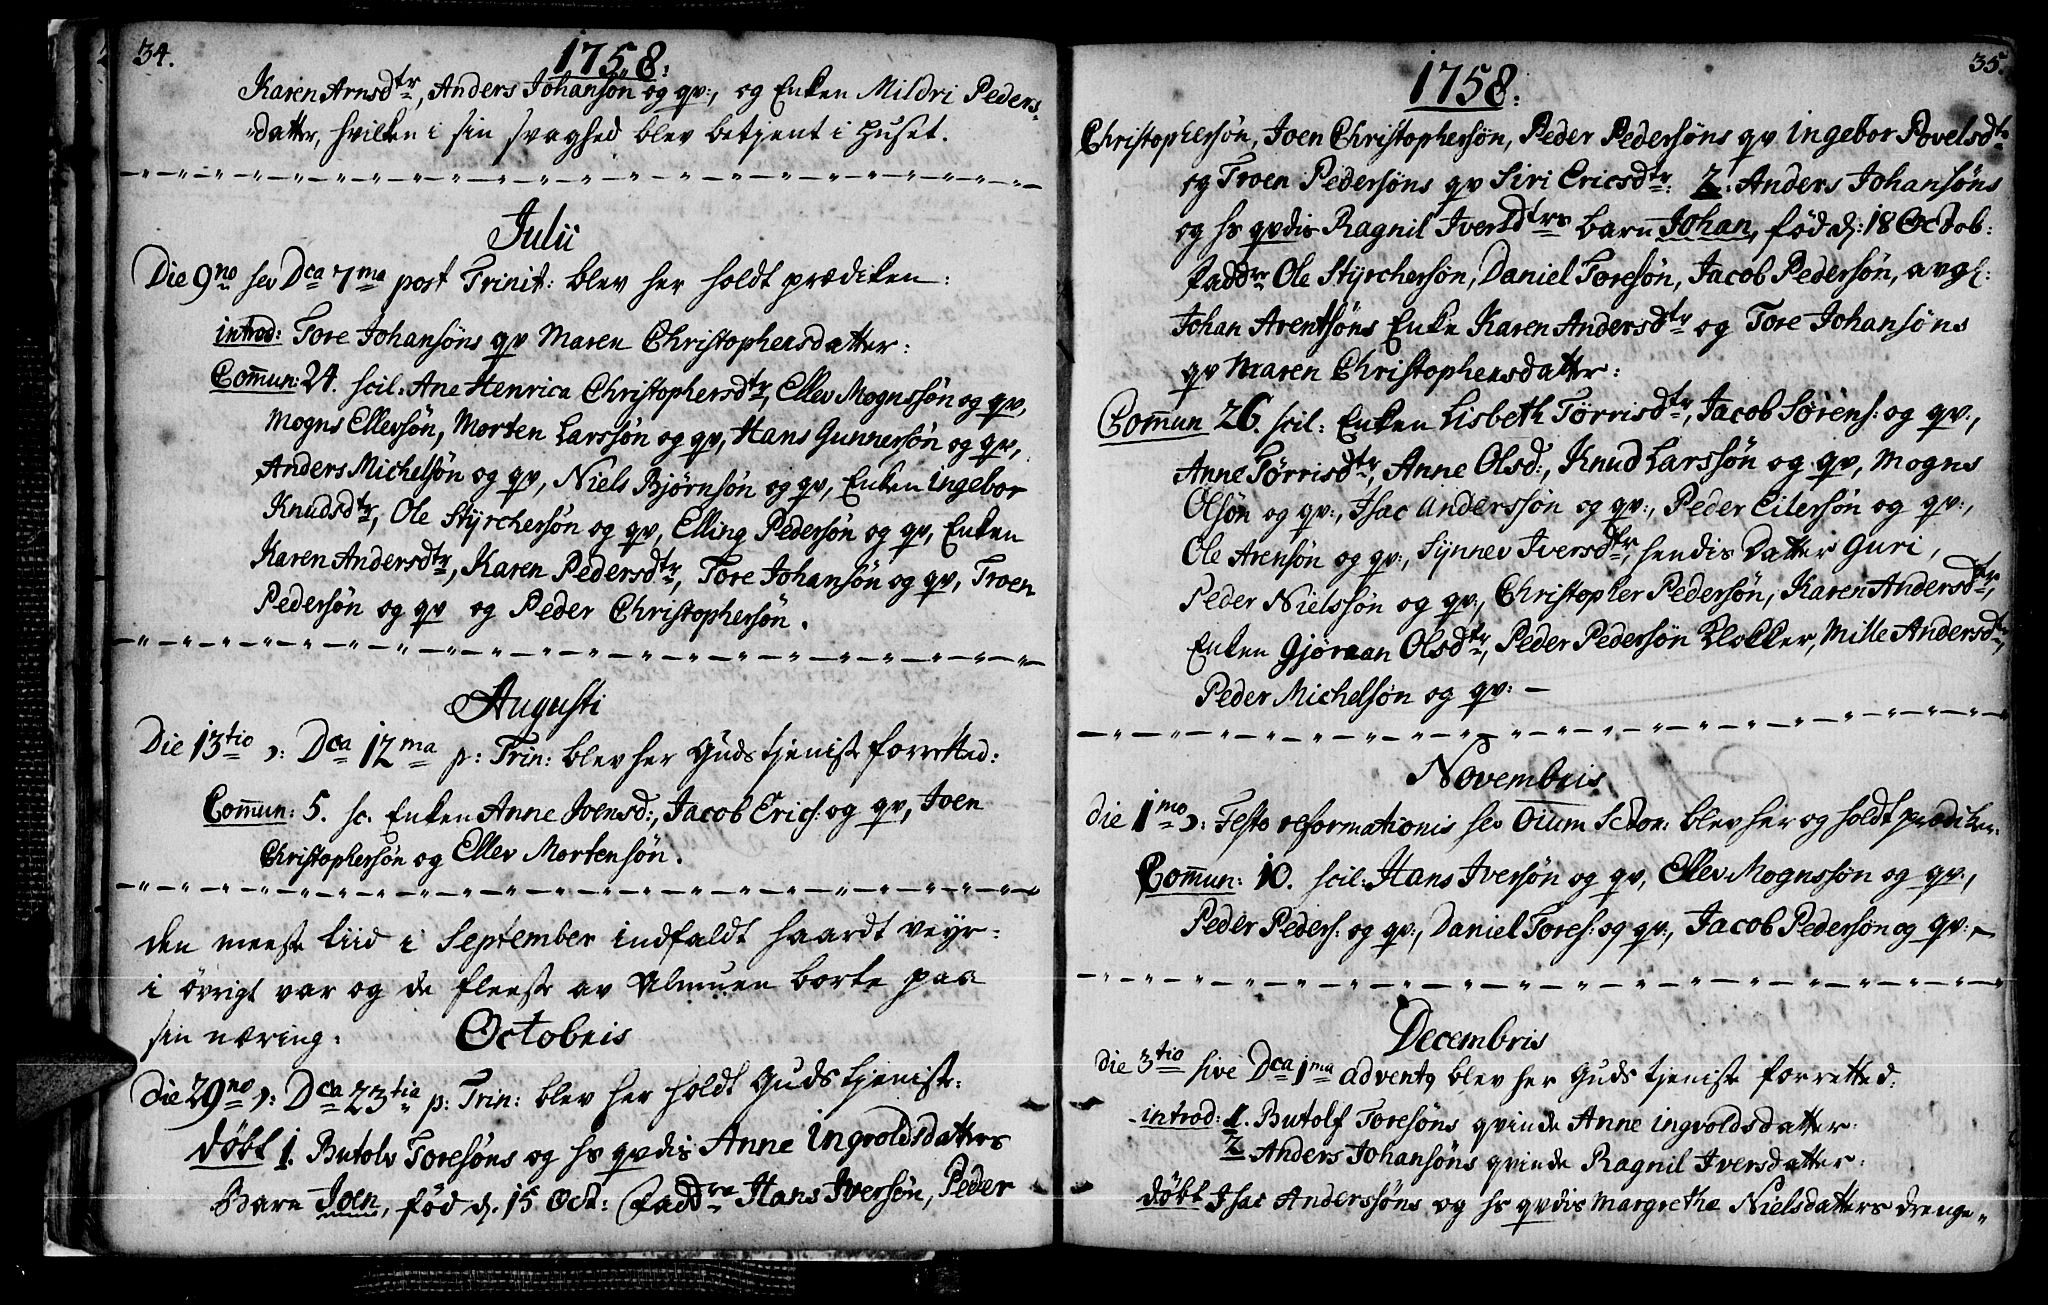 34.
1758.
Karen Arnsdtr, Anders Johansøn og qv:, og Enken Mildri Peders-
datter, hvilken i sin svaghed blev betjent i Huset.
Julii
Die 9no seu Dca 7ma post Trinit: blev her holdt prædiken:
introd: Tore Johansøns qv Maren Christophersdatter:
Com̄un: 24. scil: Ane Henrica Christophersdtr, Ellev Mognssøn og qv,
Mogns Ellevsøn, Morten Larssøn og qv, Hans Gunnersøn og qv,
Anders Michelsøn og qv, Niels Bjørnsøn og qv, Enken Ingebor
Knudsdtr, Ole Styrchersøn og qv, Elling Pedersøn og qv, Enken
Karen Andersdtr, Karen Pedersdtr, Tore Johansøn og qv, Troen
Pedersøn og qv og Peder Christophersøn.
Augusti
Die 13tio ɔ: Dca 12ma p: Trin: blev her Guds tjeniste forretted:
Com̄un: 5. sc. Enken Anne Joensd:, Jacob Erics: og qv, Joen
Christophersøn og Ellev Mortensøn.
den meeste tiid i September indfaldt haardt veyr:
i øvrigt var og de fleeste av Almuen borte paa
sin næring:
Octobris
Die 29no ɔ: Dca 23tia p: Trin: blev her holdt Guds tjeniste:
døbt 1. Butolv Toresøns og hs qvdis Anne Ingvoldsdatters
Barn Joen, fød d. 15 Oct: Faddre Hans Iversøn, Peder
35.
1758.
Christophersøn, Joen Christophersøn, Peder Pedersøns qv Ingebor Povelsdtr
og Troen Pedersøns qv Siri Ericsdtr: 2: Anders Johansøns
og hs qvdis Ragnil Iversdtrs barn Johan, fød d: 18 Octob:
Faddre Ole Styrchersøn, Daniel Toresøn, Jacob Pedersøn, avgl:
Johan Arentsøns Enke Karen Andersdtr og Tore Johansøns
qv Maren Christophersdatter:
Com̄un 26. scil: Enken Lisbeth Torrisdtr, Jacob Sørens: og qv:,
Anne Tørrisdtr, Anne Olsd:, Knud Larssøn og qv, Mogns
Olsøn og qv:, Isac Anderssøn og qv:, Peder Eilersøn og qv:,
Ole Arensøn og qv:, Synnev Iversdtr, hendis Datter Guri,
Peder Nielssøn og qv:, Christopher Pedersøn, Karen Andersdtr,
Enken Gjøraan Olsdtr, Peder Pedersøn Klokker, Mille Andersdtr,
Peder Michelsøn og qv: —
Novembris
Die 1mo ɔ: Festo reformationis seu Oium Sctor: blev her og holdt prædiken:
Com̄un: 10. scil: Hans Iversøn og qv, Ellev Mognssøn og qv:,
Peder Peders: og qv:, Daniel Tores: og qv:, Jacob Pedersøn og qv: —
Decembris
Die 3tio sive Dca 1ma Advent9 blev her Guds tjeniste forretted:
introd: 1. Butolf Toresøns qvinde Anne Ingvoldsdatter:
2 Anders Johansøns qvinde Ragnil Iversdatter:
døbt Isac Anderssøns og hs qvdis Margrethe Nielsdatters drenge-